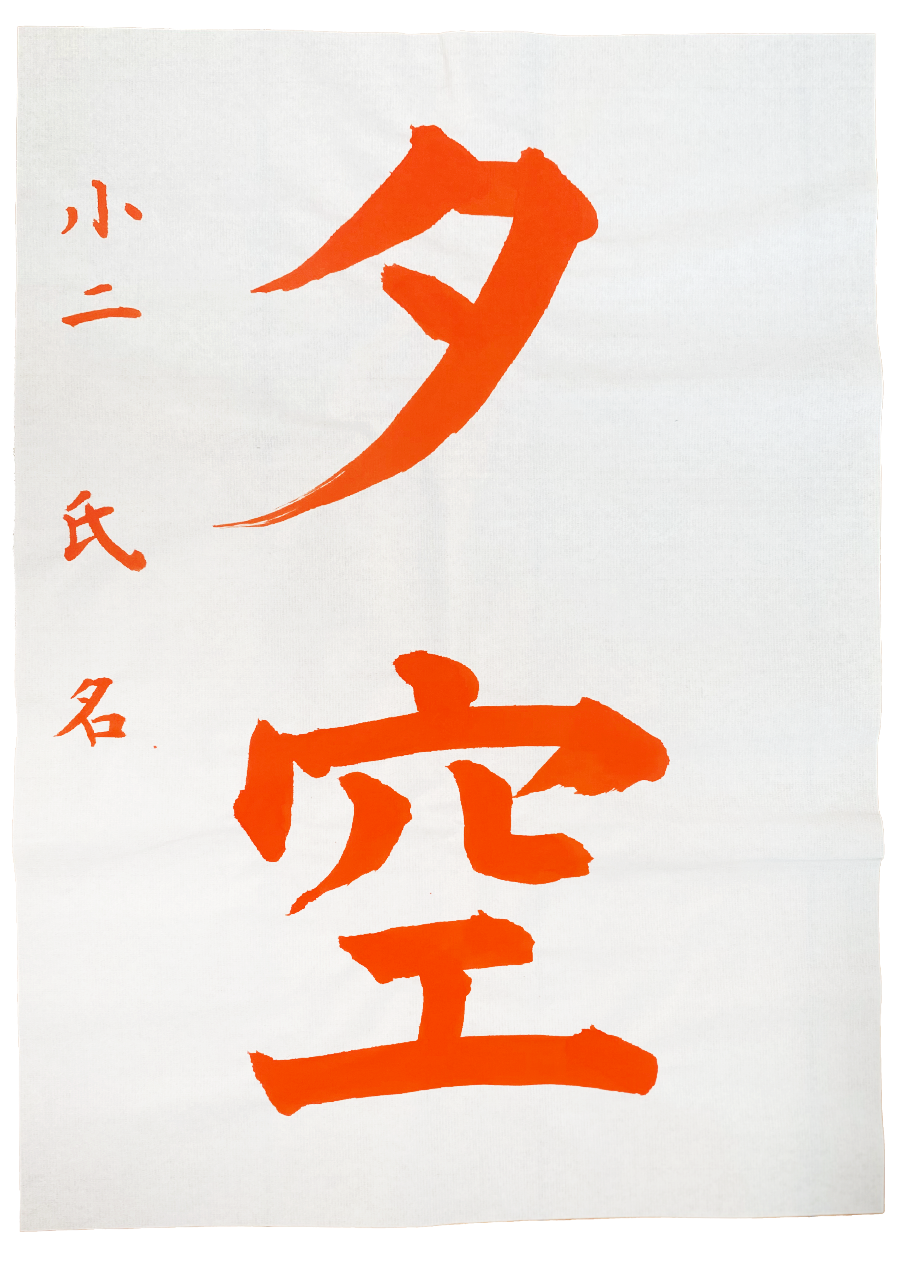 夕空
小二 氏名